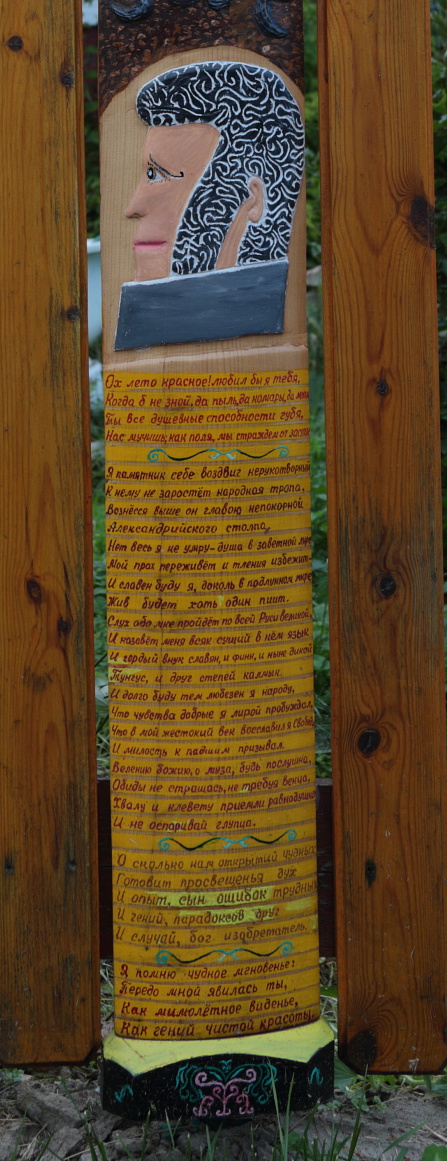 Ох лето красное! любил бы я тебя,
Когда б не зной, да пыль, да комары, да
Ты все душевные способности губя,
Нас мучишь; как поля, мы страждем от
Я памятник себе воздвиг нерукотворный
К нему не заростёт народная тропа,
Вознёсся выше он главою непокорной
Александрийского столпа,
Нет весь я не умру - душа в заветной лире
Мой прах переживёт и тления избежит
И славен буду я, доколь в подлунном мире
Жив будет хоть один пиит.
Слух обо мне пройдёт по всей Руси великой,
И назовёт меня всяк сущий в нём язык
И гордый внук славян, и финн, и ныне дикой
Тунгус, и друг степей калмык.
И долго буду тем любезен я народу,
Что чувства добрые я лирой пробуждал,
Что в мой жестокий век восславил я свободу
И милость к падшим призывал.
Велению божию, о муза, будь послушна,
Обиды не страшась, не требуя венца,
Хвалу и клевету приемли равнодушно
И не оспаривай глупца.
О сколько нам открытий чудных
Готовит просвещенья дух
И опыт, сын ошибок трудных
И гений, парадоксов друг
И случай, бог изобретатель.
Я помню чудное мгновенье:
Передо мной явилась ты,
Как мимолётное виденье,
Как гений чистой красоты.